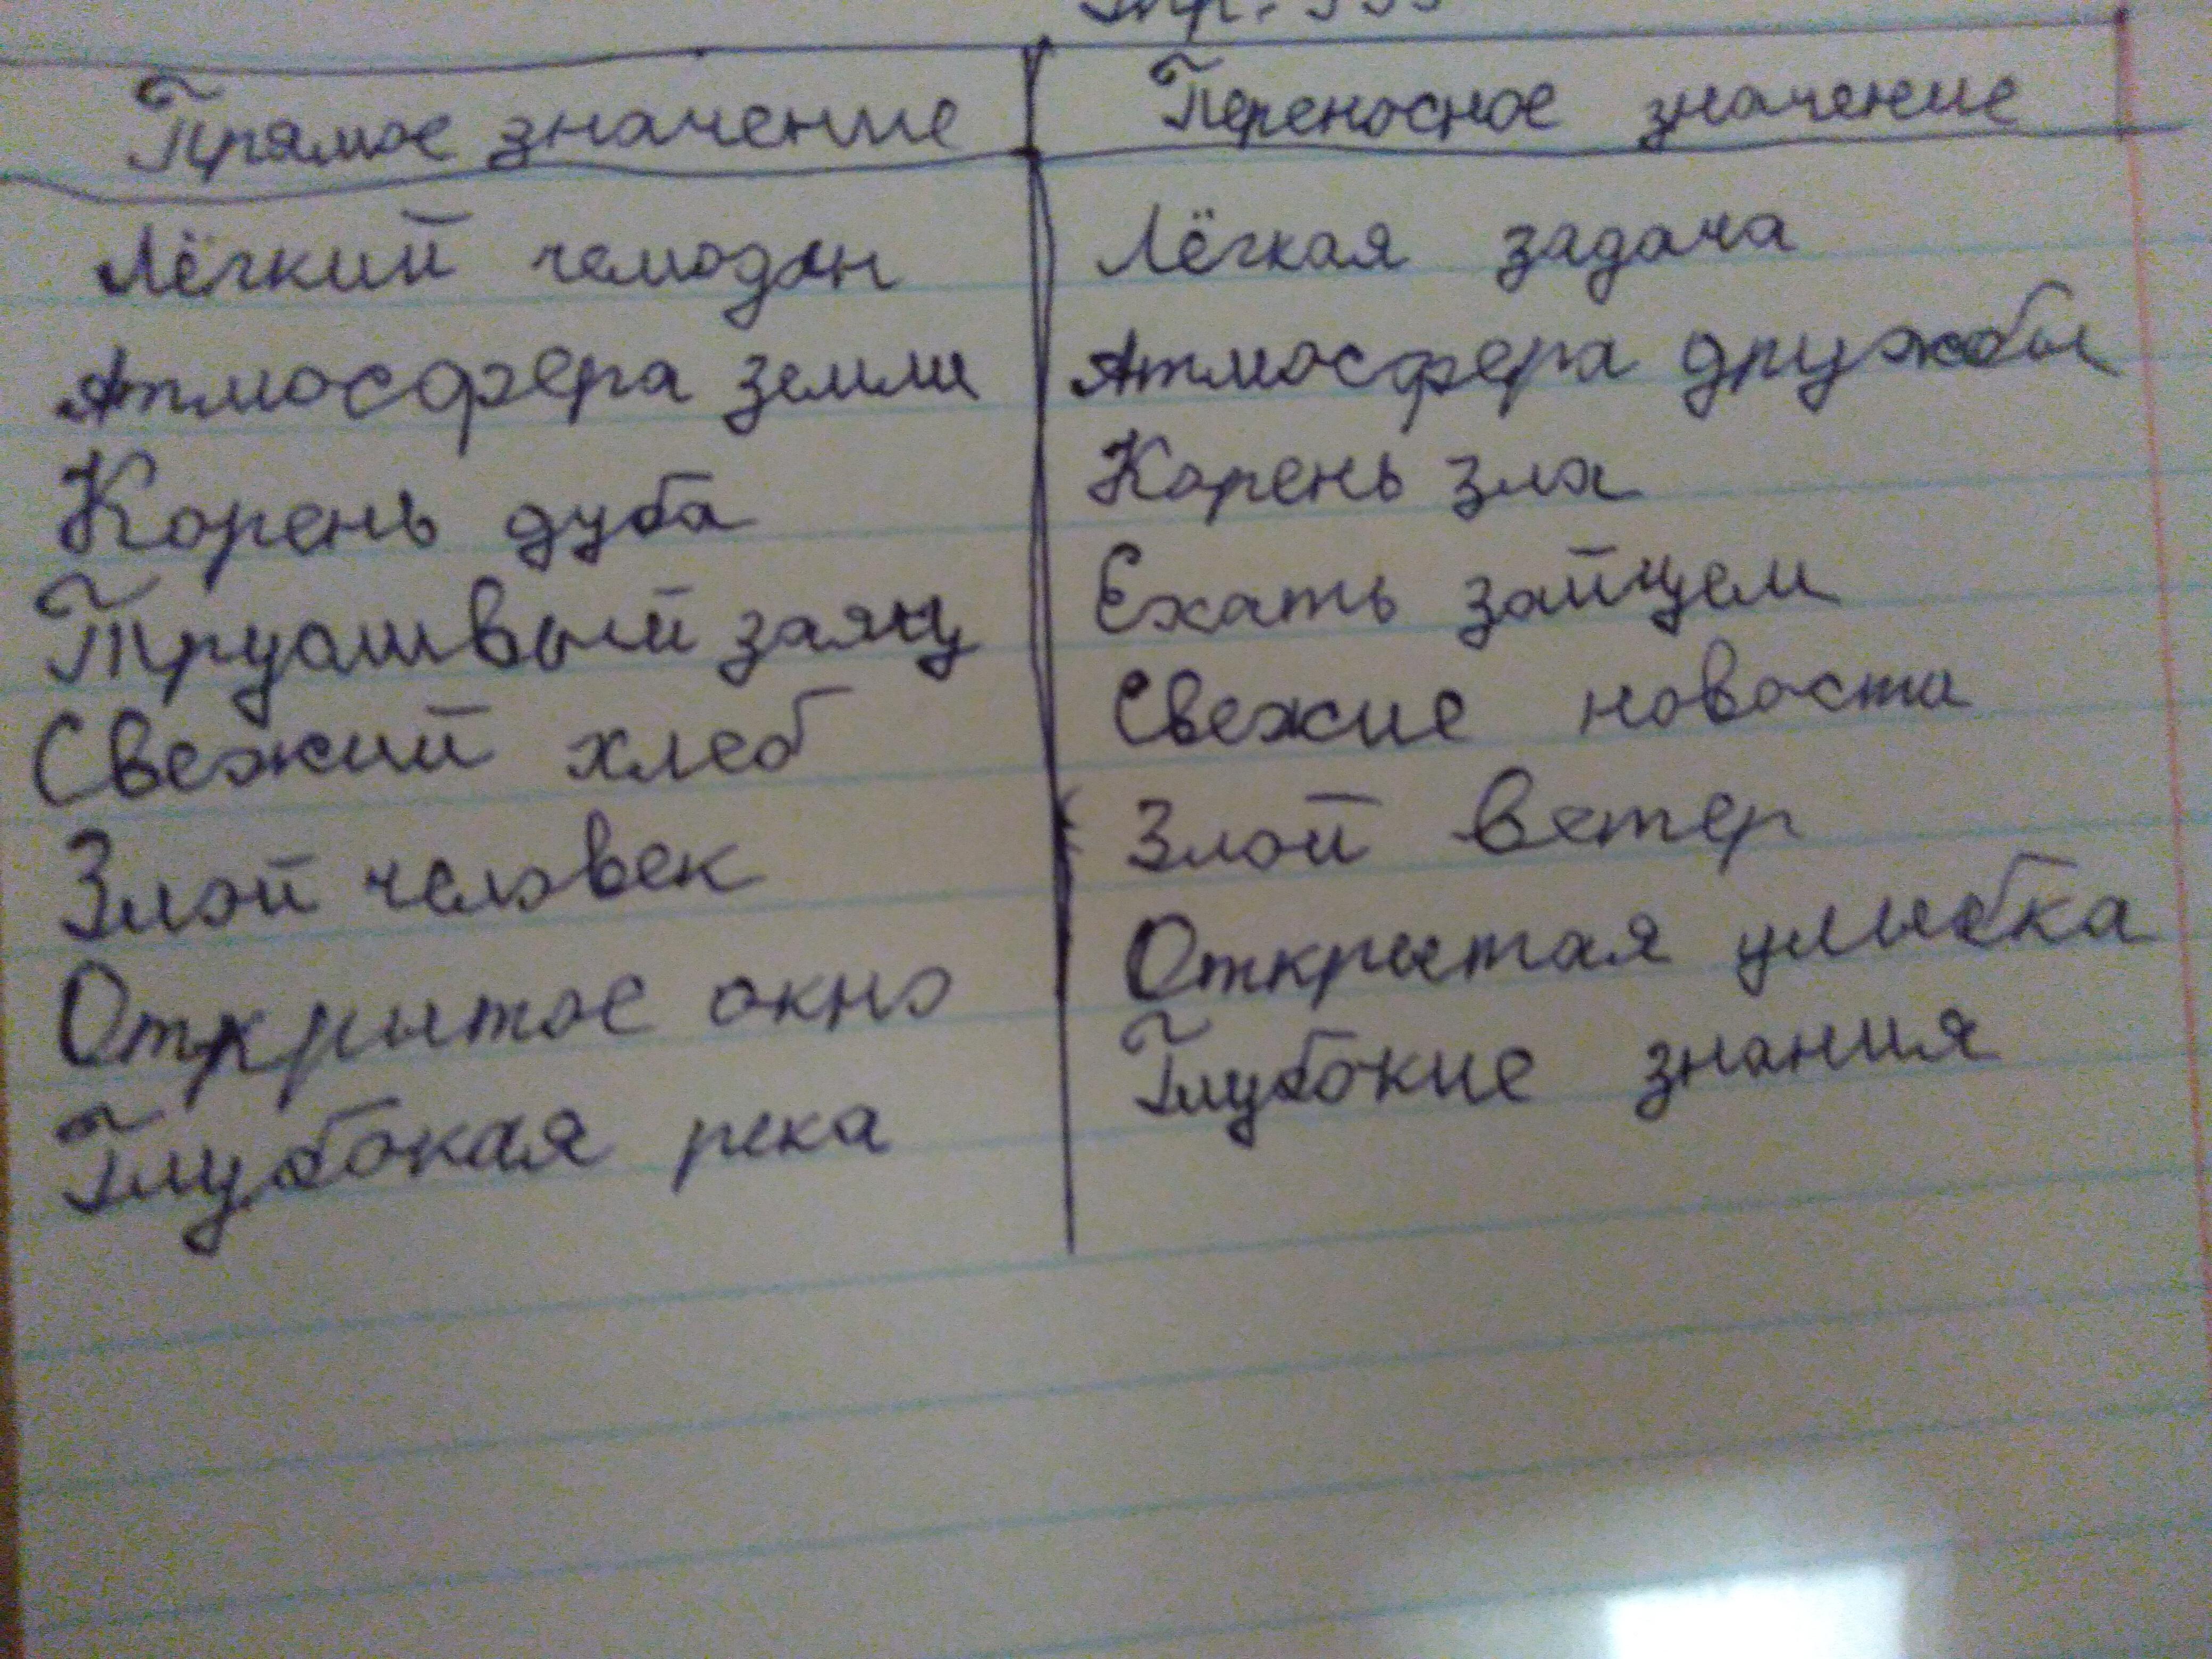 Прямое значение | Переносное значение
Лёгкий чемодан | Лёгкая задача
Атмосфера земли | Атмосфера дружбы
Корень дуба | Корень зла
Трушвый заяц | Ехать зайцем
Свежий хлеб | Свежие новости
Злой человек | Злой ветер
Открытое окно | Открытая улыбка
Глубокая река | Глубокие знания